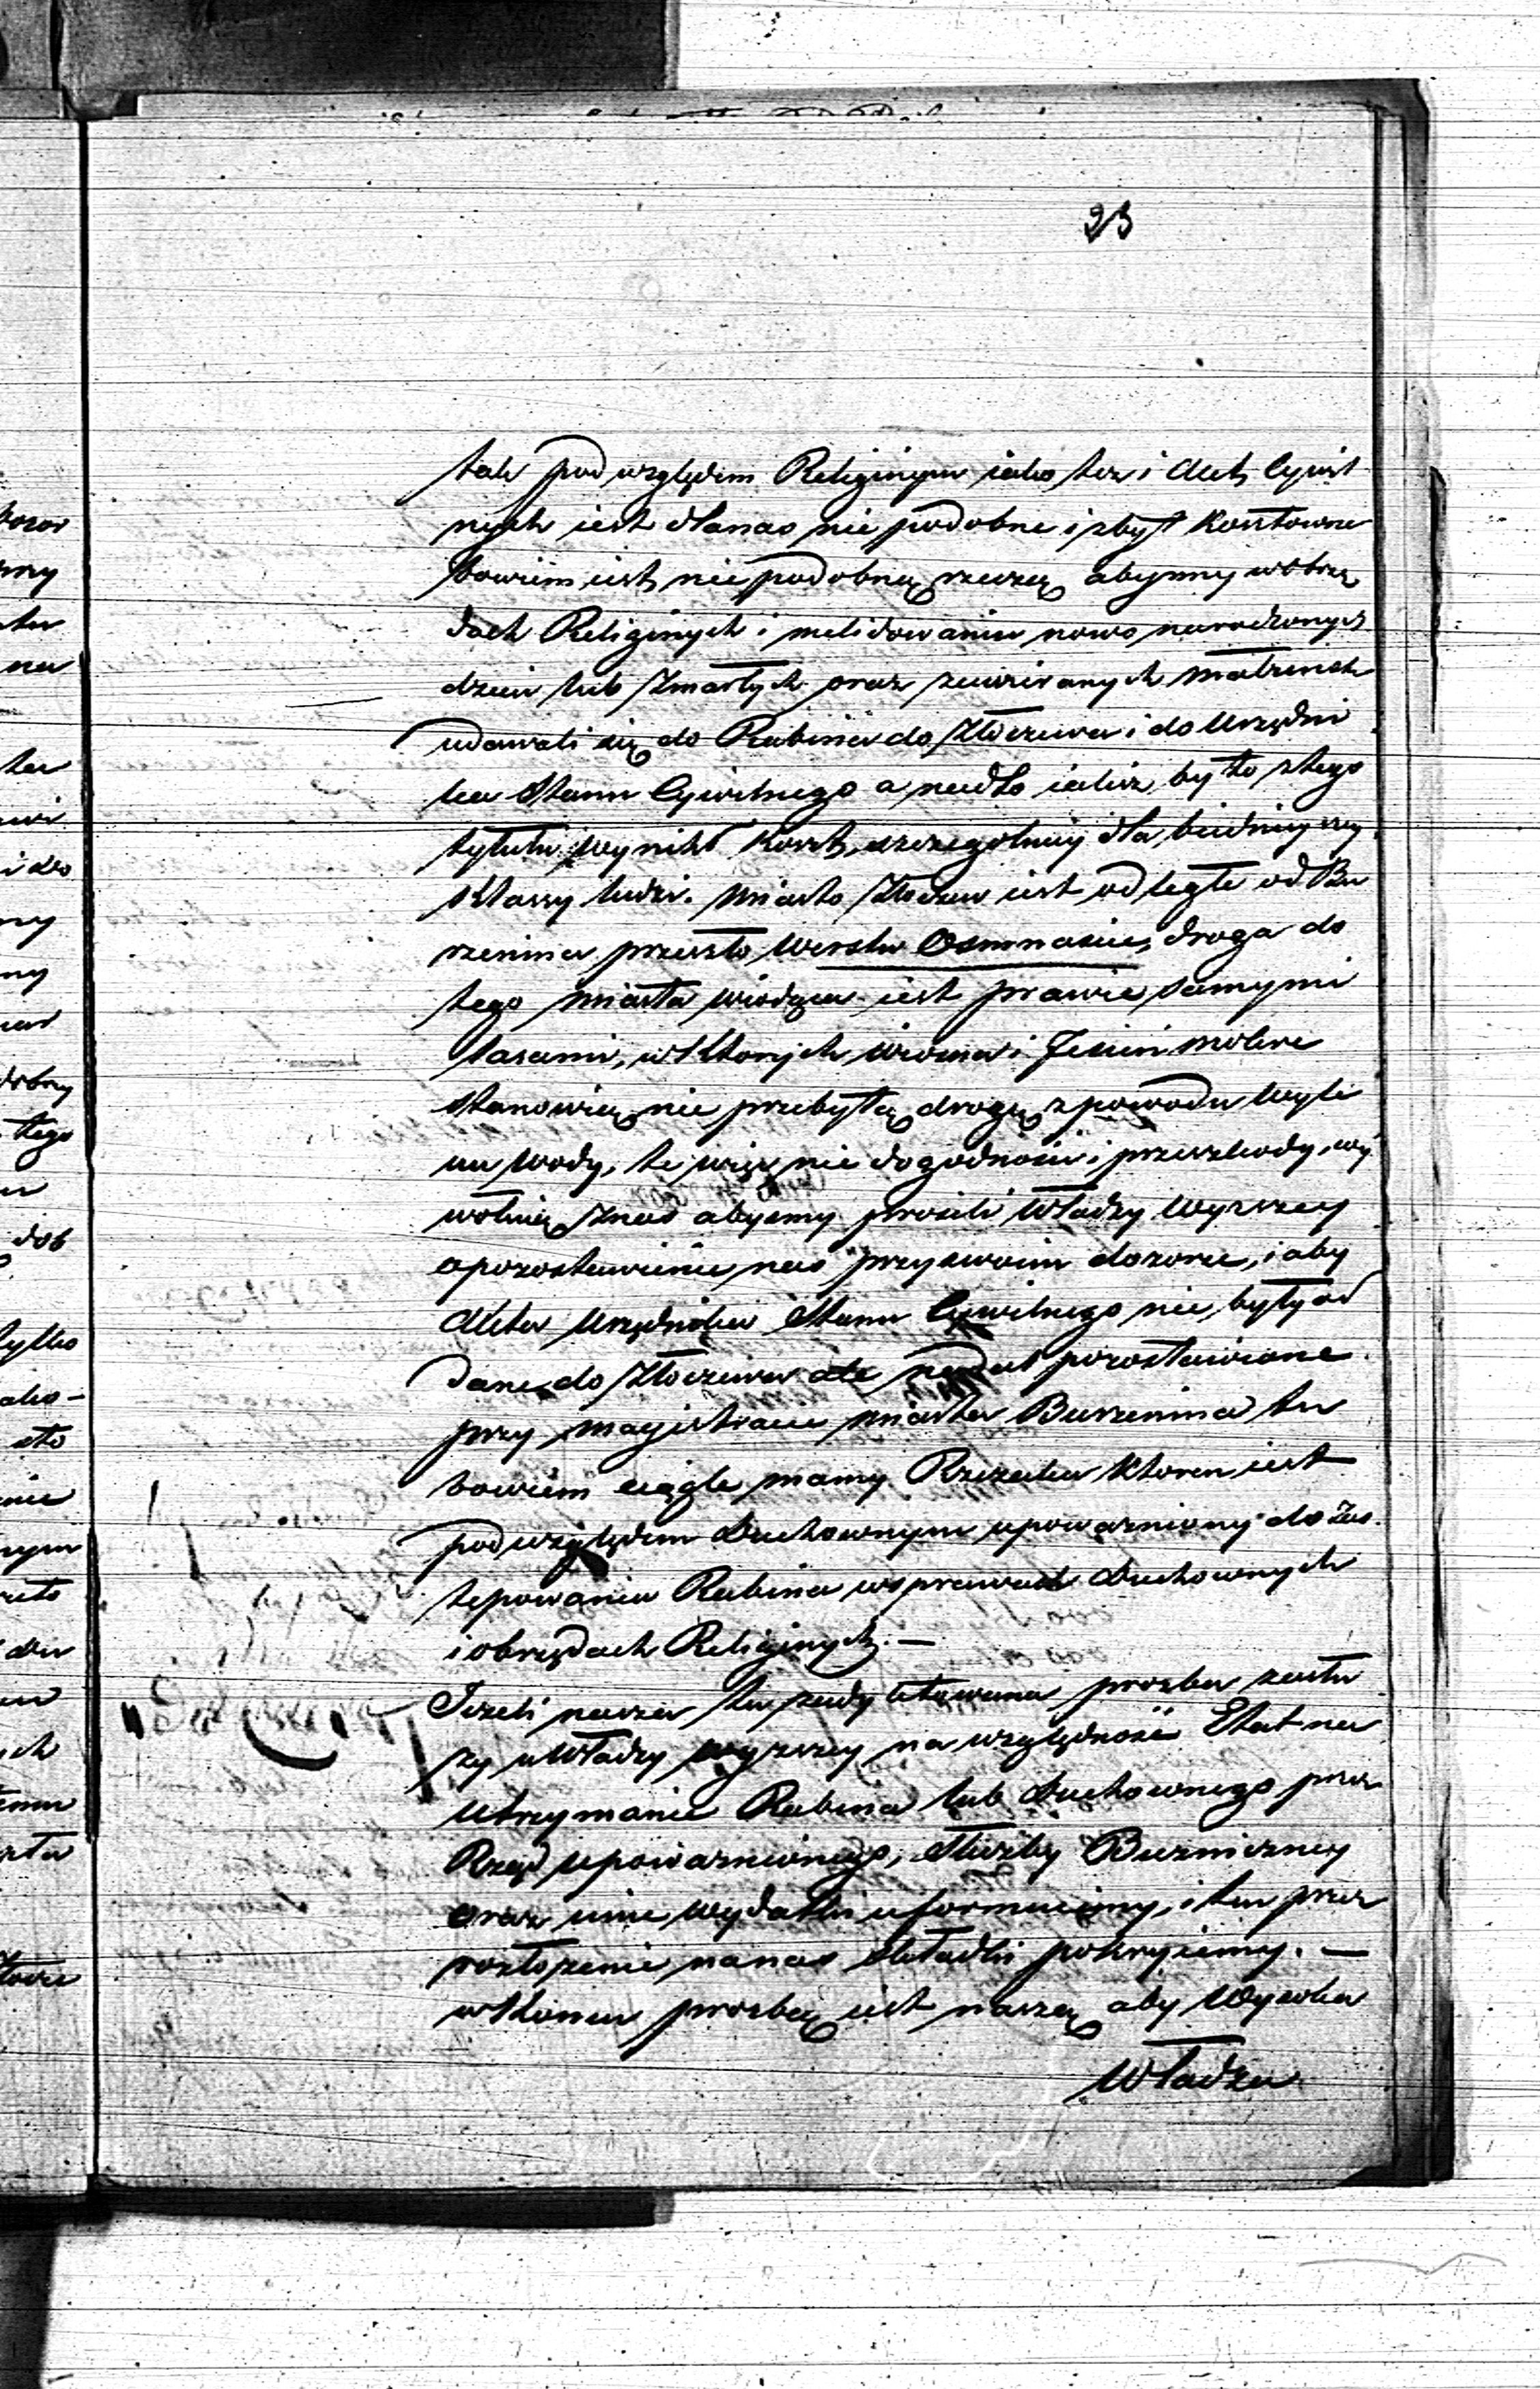 23
tak pod względem Religinym iako tez i Akt Cywil
nych iest dla nas nie podobne i zbyt Kosztowne
bowiem iest nie podobną rzeczą abyśmy w obrzę
dach Religinych i meldowaniu nowo narodzonych
dzieci lub Zmarłych oraz zawieranych małzenstw
udawali się do Rabina do Złoczewa i do Urzędni
ka Stanu Cywilnego a nadto iakiz by to z tego
tytułu wynikł Koszt, szczegolniey dla biednieyszey
Klassy ludzi. Miasto Złoczew iest odległe od Bu
rzenina przeszło Werstw Osmnascie, droga do
tego Miasta wiodąca iest prawie samymi
lasami, w Ktorych wiosna i Jesien mokre
stanowią nie przebytą drogę z powodu wyle
wu wody, te więc nie dogodności i przeszkody, wy
wołuią z nas abysmy prosili Władzy Wyzszey
o pozostawienie nas przy swoim dozorze, i aby
Akta Urzędnika Stanu Cywilnego nie były od
dane do Złoczewa ale nadal pozostawione
przy Magistracie Miasta Burzenina tu
bowiem ciągle mamy Rzezaka Ktoren iest
pod względem Duchownym upowazniony do Zas
tępowania Rabina w sprawach Duchownych
i obrzędach Religinych. —
Jezeli nasza ta prozba zasłu
zy u Władzy wyzszey na względność Etat na
utrzymanie Rabina lub Duchownego przez
Rząd upowaznionego, Służby Buzniczney
oraz inne wydatki uformuiemy, i tu przez
rozłozenie na nas składki pokryiemy. —
w Koncu prozbą iest naszą aby Wysoka
Władza